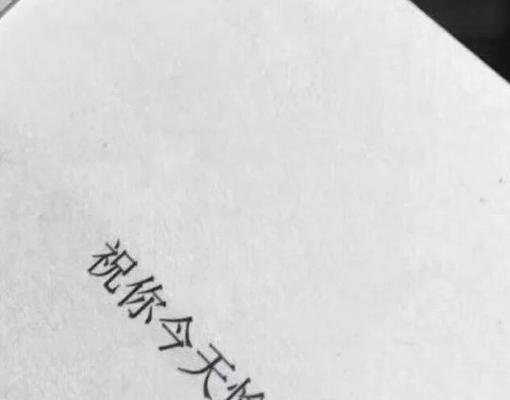 祝你今天